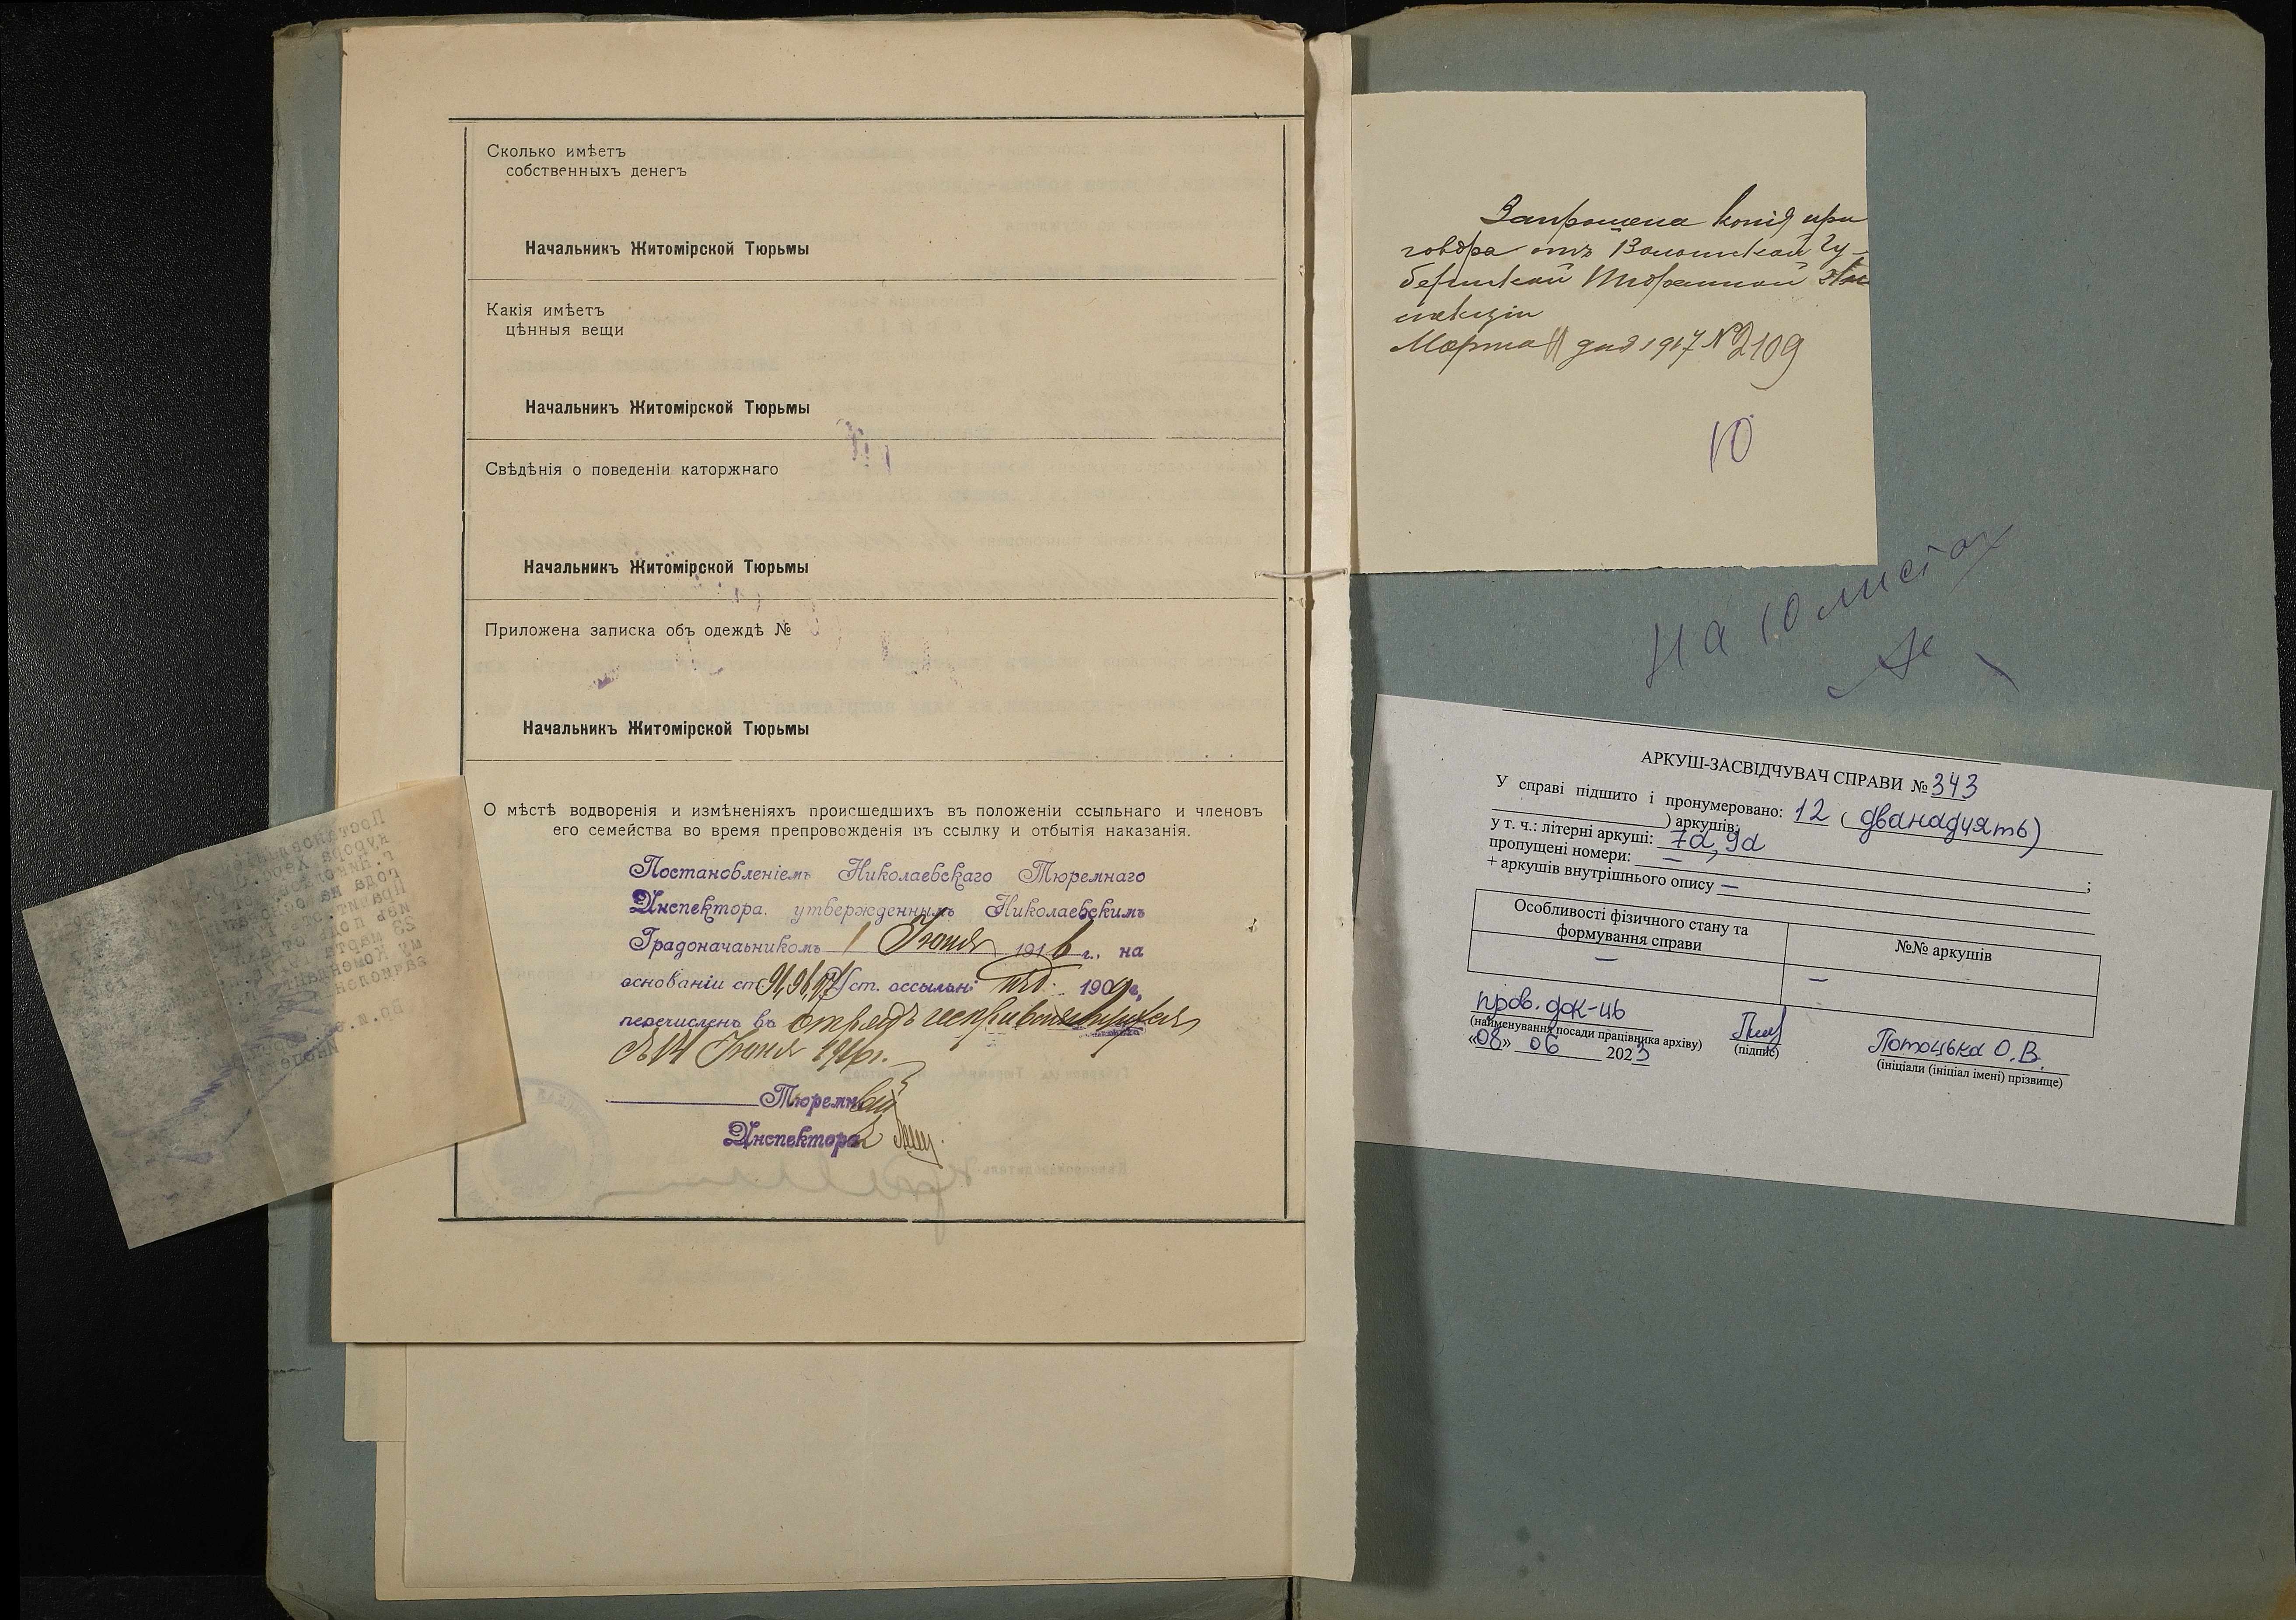 Сколько имѣетъ
собственныхъ денегъ
Начальникъ Житомірской Тюрьмы
Какія имѣетъ
цѣнныя вещи
Начальникъ Житомірской Тюрьмы
Свѣдѣнія о поведеніи каторжнаго
Начальникъ Житомірской Тюрьмы
Приложена записка объ одеждѣ №
Начальникъ Житомірской Тюрьмы
О мѣстѣ водворенія и измѣненіяхъ происшедшихъ въ положеніи ссыльнаго и членовъ
его семейства во время препровожденія въ ссылку и отбытія наказанія.
Постановленіемъ Николаевскаго Тюремнаго
Инспектора. утвержденнымъ Николаевскимъ
Градоначаьникомъ 1 Іюня 1916 г., на
основаніи ст 96, 97 Уст. оссыльн: изд. 1909 г,
перечисленъ въ отрядъ исправляющихся
14 Іюня 1916 г.
Тюремный
Инспекторъ
Запрошена копія при
говора отъ Волынской Гу-
бернской Тюремной Ин
спекціи
Марта 11 дня 1917 № 2109
10
На 10 листах
АРКУШ-ЗАСВІДЧУВАЧ СПРАВИ № 343
У справі підшито і пронумеровано: 12 (дванадцять)
) аркушів;
у т. ч.: літерні аркуші: 7а, 9а ;
пропущені номери: —
+ аркушів внутрішнього опису —
Особливості фізичного стану та
формування справи
№№ аркушів
— —
пров. док-нь
(найменування посади працівника архіву)
(підпис)
Потоцька О.В.
(ініціали (ініціал імені) прізвище)
«08» 06 2023